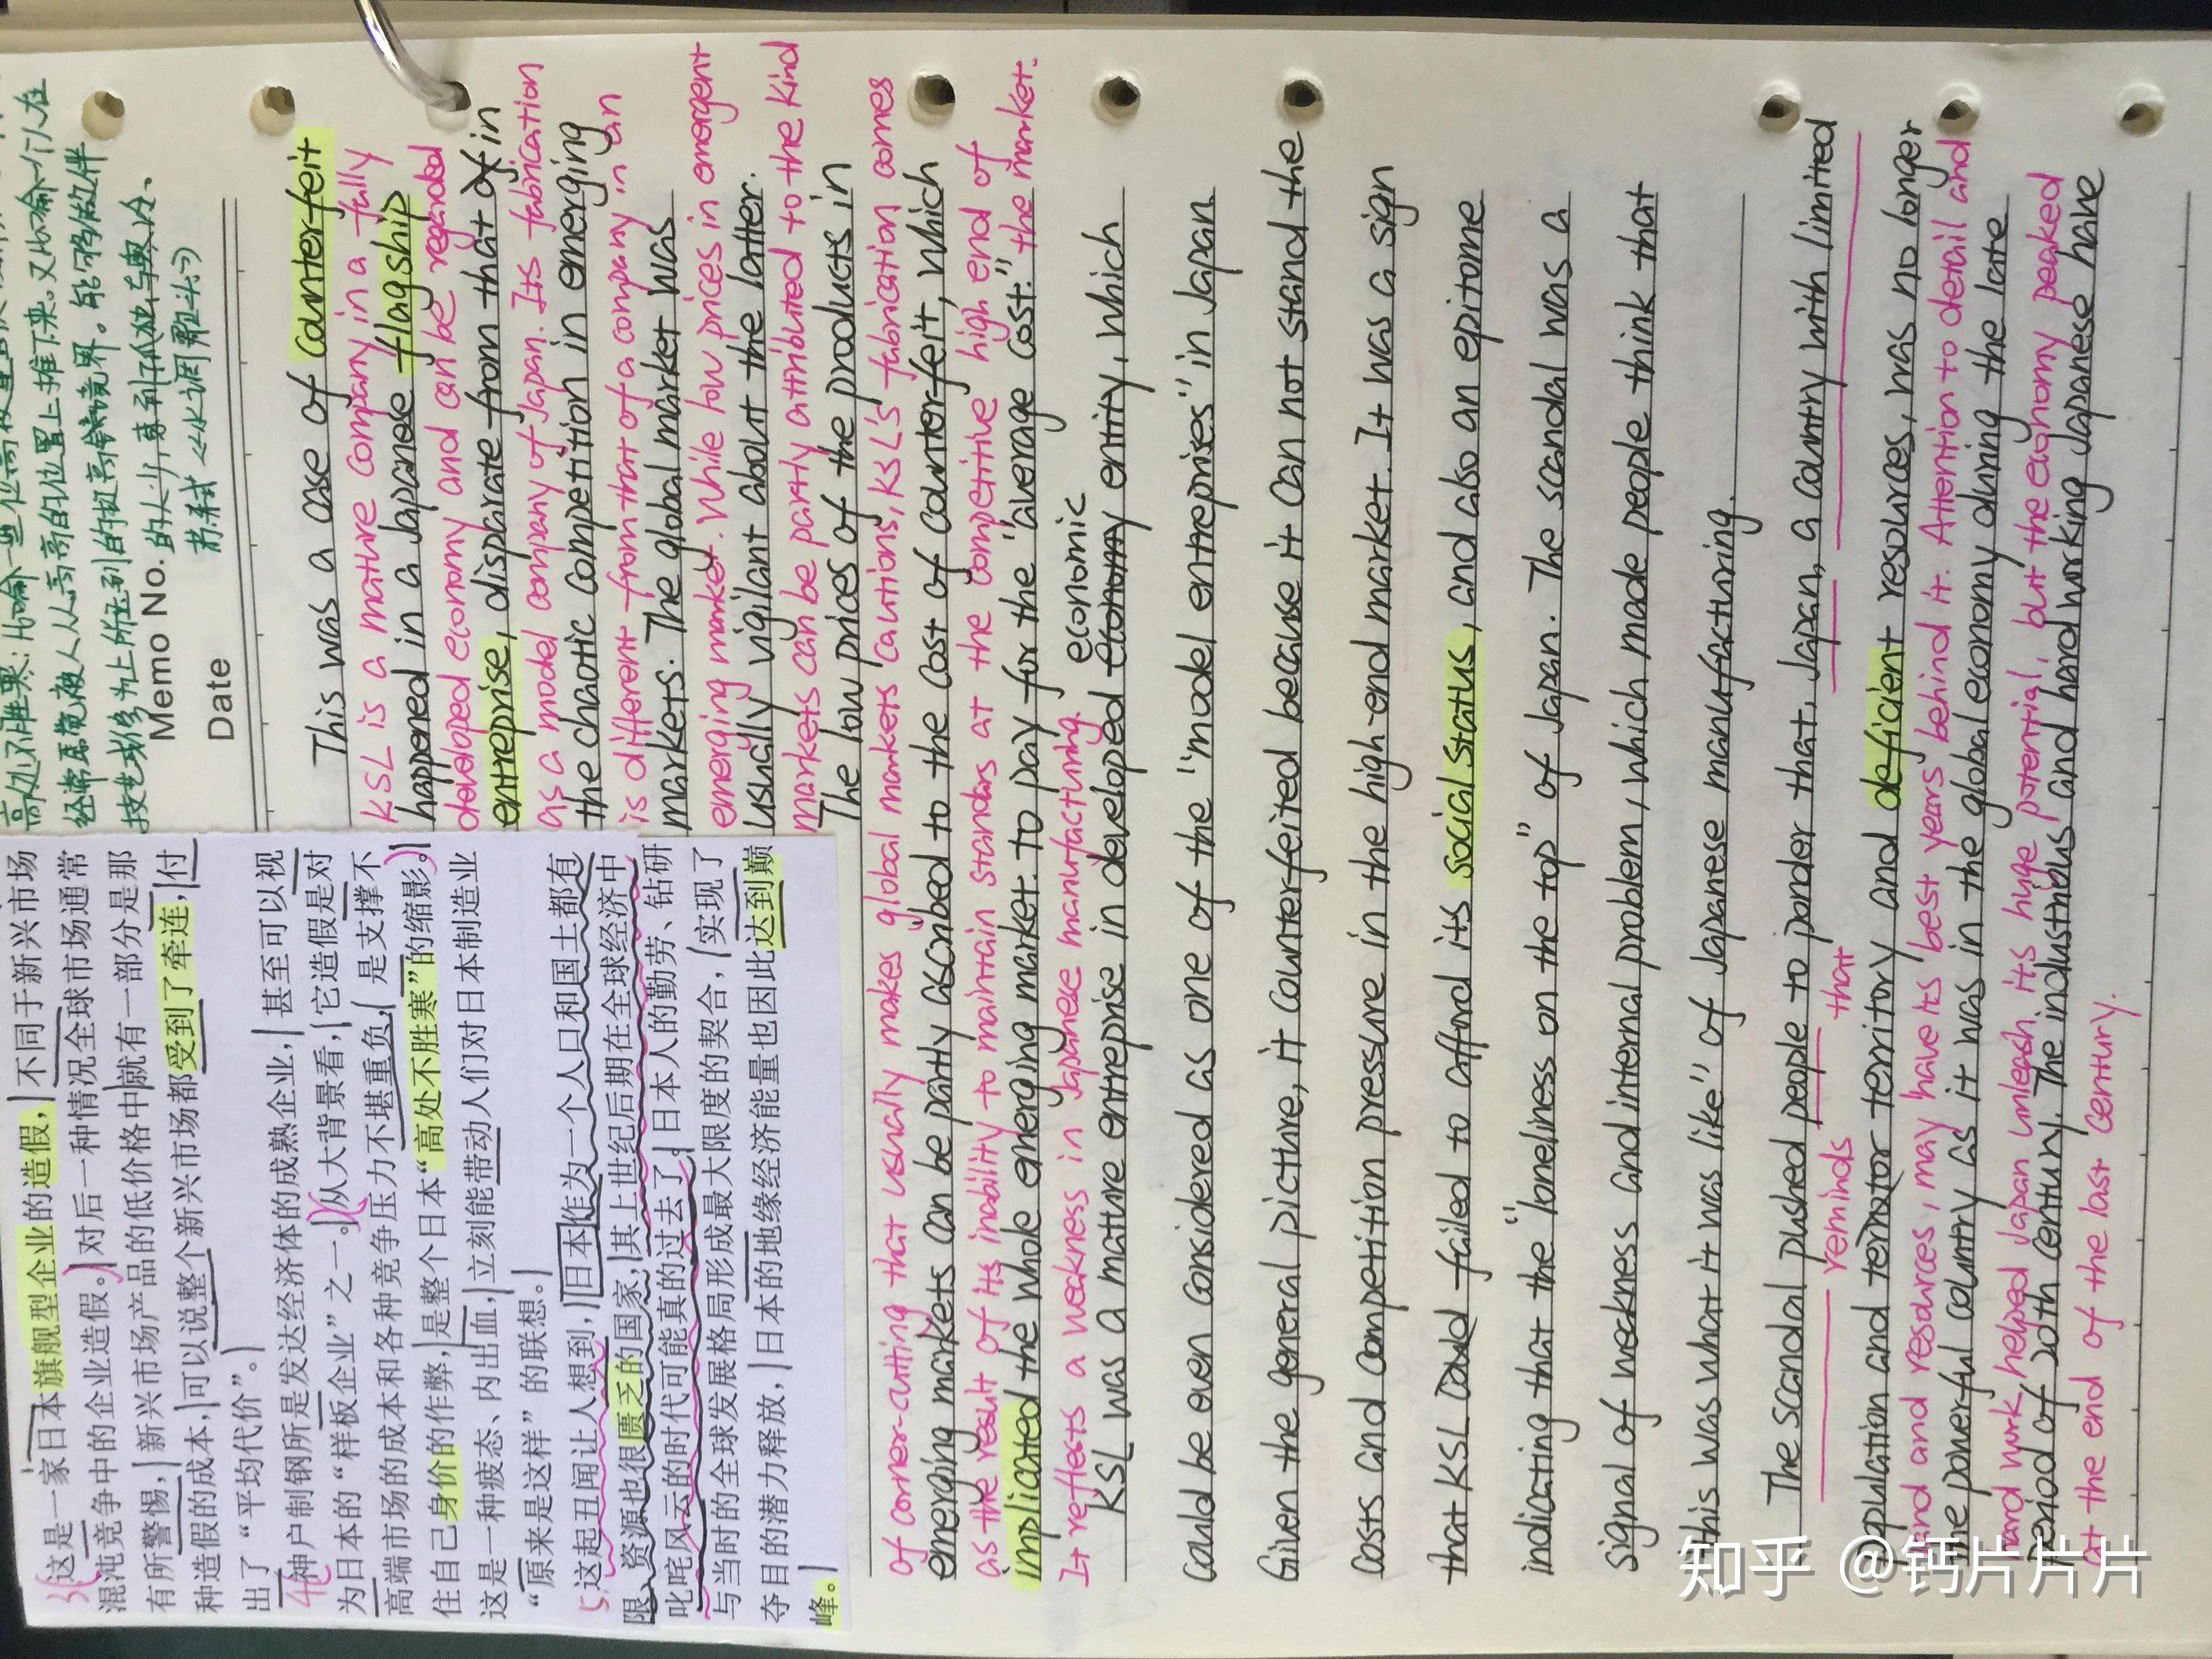 高处不胜寒:比喻一些位高权重
人从高高的位置上推下来。又比喻一个人在
技艺或修为上所达到的极高境界。能够做伴
的人少,喜到孤独与寒冷、
苏轼《水调歌头》
Memo No.
Date
3)这是一家日本旗舰型企业的造假,不同于新兴市场
混沌竞争中的企业造假。对后一种情况全球市场通常
有所警惕,新兴市场产品的低价格中就有一部分是那
种造假的成本,可以说整个新兴市场都受到了牵连,付
出了“平均代价”。
4)神户制钢所是发达经济体的成熟企业,甚至可以视
为日本的“样板企业”之一。从大背景看,它造假是对
高端市场的成本和各种竞争压力不堪重负,是支撑不
住自己身价的作弊,是整个日本“高处不胜寒”的缩影。
这是一种疲态、内出血,立刻能带动人们对日本制造业
“原来是这样”的联想。
5.这起丑闻让人想到,日本作为一个人口和国土都有
限、资源也很匮乏的国家,其上世纪后期在全球经济中
叱咤风云的时代可能真的过去了。日本人的勤劳、钻研
与当时的全球发展格局形成最大限度的契合,实现了
夺目的潜力释放,日本的地缘经济能量也因此达到巅
峰。
This was a case of counterfeit
KSL is a mature company in a fully
happened in a Japanese flagship
developed economy and can be regarded
entreprise, disparate from that of in
as a model company of Japan. Its fabrication
the chaotic competition in emerging
is different from that of a company in an
markets. The global market was
emerging market. While low prices in emergent
usually vigilant about the latter.
markets can be partly attributed to the kind
The low prices of the products in
of corner-cutting that usually makes global markets cautions, KSL's fabrication comes
emerging markets can be partly ascribed to the cost of counterfeit, which
as the result of its inability to maintain standars at the competitive high end of
implicated the whole emerging market. to pay for the "average cost." the market.
It reflests a weakness in Japanese manufacturing.
economic
KSL was a mature entreprise in developed economy entity, which
could be even considered as one of the "model entreprises" in Japan
Given the general picture, it counterfeited because it can not stand the
costs and competition pressure in the high-end market. It was a sign
that KSL could failed to afford its social status, and also an epitome
indicating that the "loneliness on the top" of Japan. The scandal was a
signal of weekness and internal problem, which made people think that
"this was what it was like" of Japanese manufacturing.
The scandal pushed people to ponder that, Japan, a country with limited
reminds that
population and territory and deficient resources, was no longer
land and resources, may have its best years behind it. Attention to detail and
the powerful country as it was in the global economy during the late
hard work helped Japan unleash its huge potential, but the economy peaked
period of 20th century. The industrious and hard working Japanese have
at the end of the last century.
知乎 @钙片片片